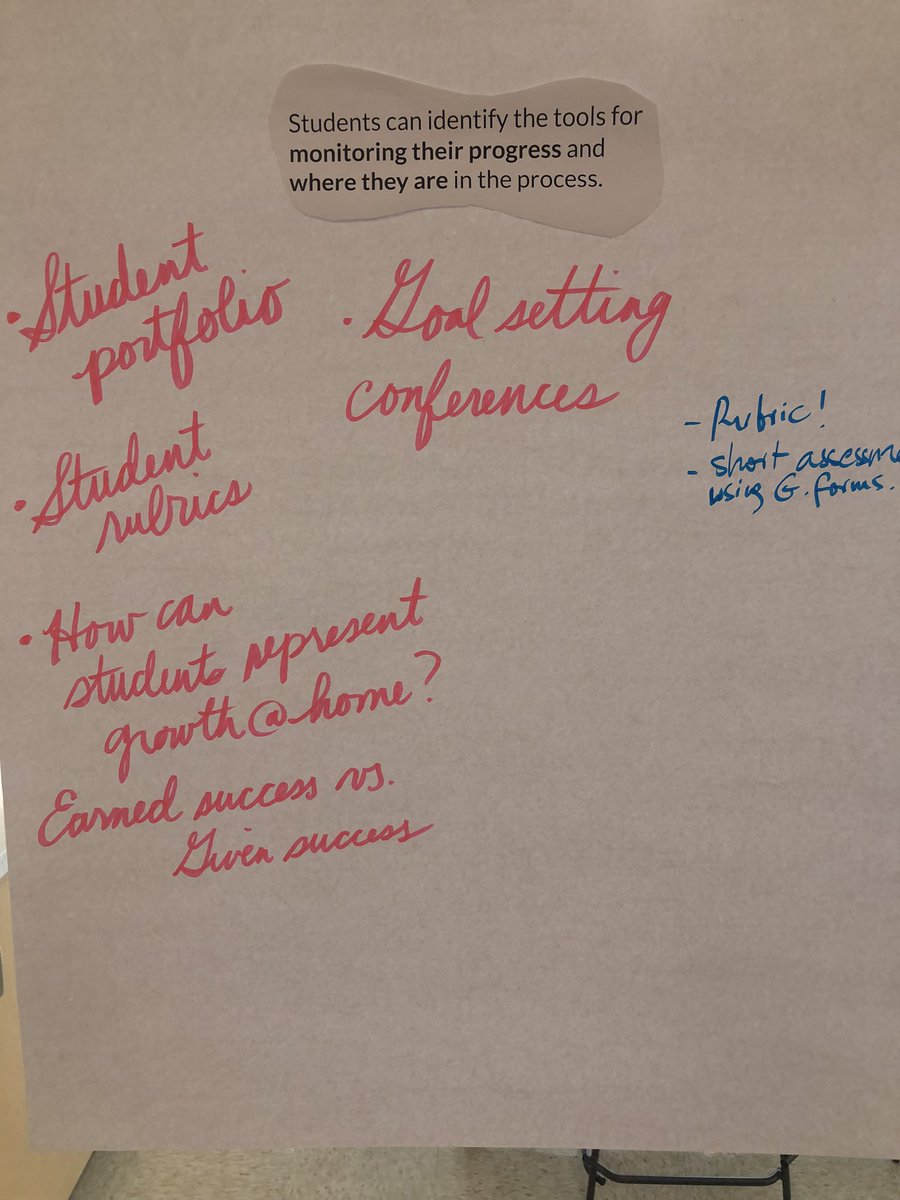 Students can identify the tools for
monitoring their progress and
where they are in the process.
• Student
portfolio
• Student
rubrics
• How can
students represent
growth@home?
Earned success vs.
Given success
• Goal setting
conferences
- Rubric!
- short assessme
using G. forms.